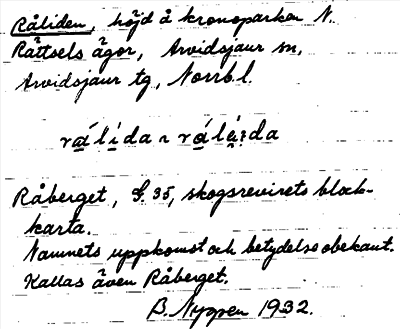 Råliden, höjd å kronoparken N.
Råttsels ägor, Arvidsjaur sn,
Arvidsjaur tg, Norrb.l.
rá̱li̱da ~ rá̱lá̱i̯da
Råberget, S. 35, skogsrevirets block-
karta.
Namnets uppkomst och betydelse obekant.
Kallas även Råberget.
B. Nyppen 1932.